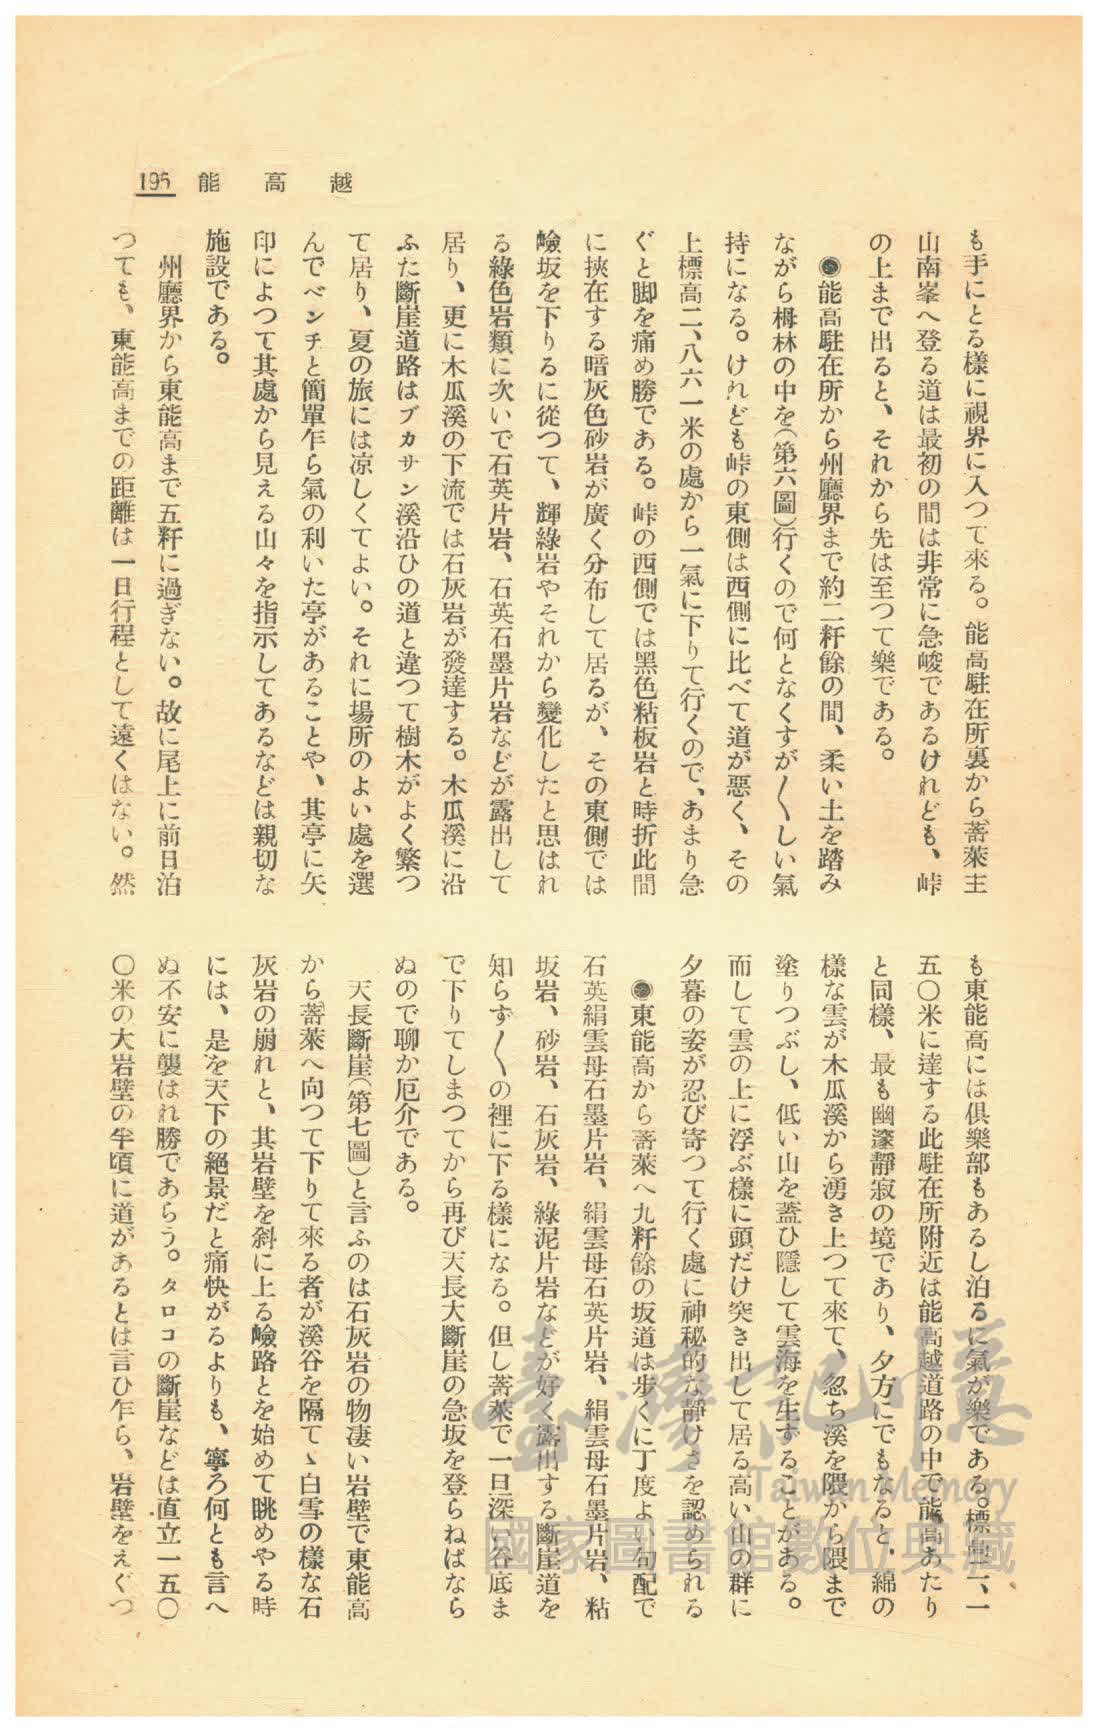 195 能高越
も手にとる樣に視界に入つて來る。能高駐在所裏から菩萊主
山南峯へ登る道は最初の間は非常に急峻であるけれども、峠
の上まで出ると、それから先は至つて樂である。
◉能高駐在所から州廳界まで約二粁餘の間、柔い土を踏み
ながら栂林の中を(第六圖)行くので何となくすが〱しい氣
持になる。けれども峠の東側は西側に比べて道が惡く、その
上標高二、八六一米の處から一氣に下りて行くので、あまり急
ぐと脚を痛め勝である。峠の西側では黑色粘板岩と時折此間
に挾在する暗灰色砂岩が廣く分布して居るが、その東側では
嶮坂を下りるに從つて、輝綠岩やそれから變化したと思はれ
る綠色岩類に次いで石英片岩、石英石墨片岩などが露出して
居り、更に木瓜溪の下流では石灰岩が發達する。木瓜溪に沿
ふた斷崖道路はブカサン溪沿ひの道と違つて樹木がよく繁つ
て居り、夏の旅には凉しくてよい。それに場所のよい處を選
んでベンチと簡單乍ら氣の利いた亭があることや、其亭に矢
印によつて其處から見える山々を指示してあるなどは親切な
施設である。
州廳界から東能高まで五粁に過ぎない。故に尾上に前日泊
つても、東能高までの距離は一日行程として遠くはない。然
も東能高には倶樂部もあるし泊るに氣が樂である。標高二、一
五〇米に達する此駐在所附近は能高越道路の中で能高あたり
と同樣、最も幽邃靜寂の境であり、夕方にでもなると、綿の
樣な雲が木瓜溪から湧き上つて來て、忽ち溪を隈から隈まで
塗りつぶし、低い山を蓋ひ隱して雲海を生ずることがある。
而して雲の上に浮ぶ樣に頭だけ突き出して居る高い山の群に
夕暮の姿が忍び寄つて行く處に神秘的な靜けさを認められる
◉東能高から菩萊へ九粁餘の坂道は步くに丁度よい勾配で
石英絹雲母石墨片岩、絹雲母石英片岩、絹雲母石墨片岩、粘
坂岩、砂岩、石灰岩、綠泥片岩などが好く露出する斷崖道を
知らず〱の裡に下る樣になる。但し菩萊で一旦深い谷底ま
で下りてしまつてから再び天長大斷崖の急坂を登らねばなら
ぬので聊か厄介である。
天長斷崖(第七圖)と言ふのは石灰岩の物凄い岩壁で東能高
から菩萊へ向つて下りて來る者が溪谷を隔てゝ白雪の樣な石
灰岩の崩れと、其岩壁を斜に上る嶮路とを始めて眺めやる時
には、是を天下の絕景だと痛快がるよりも、寧ろ何とも言へ
ぬ不安に襲はれ勝であらう。タロコの斷崖などは直立一五〇
〇米の大岩壁の半頃に道があるとは言ひ乍ら、岩壁をえぐつ
臺灣記憶
Taiwan Memory
國家圖書館數位典藏